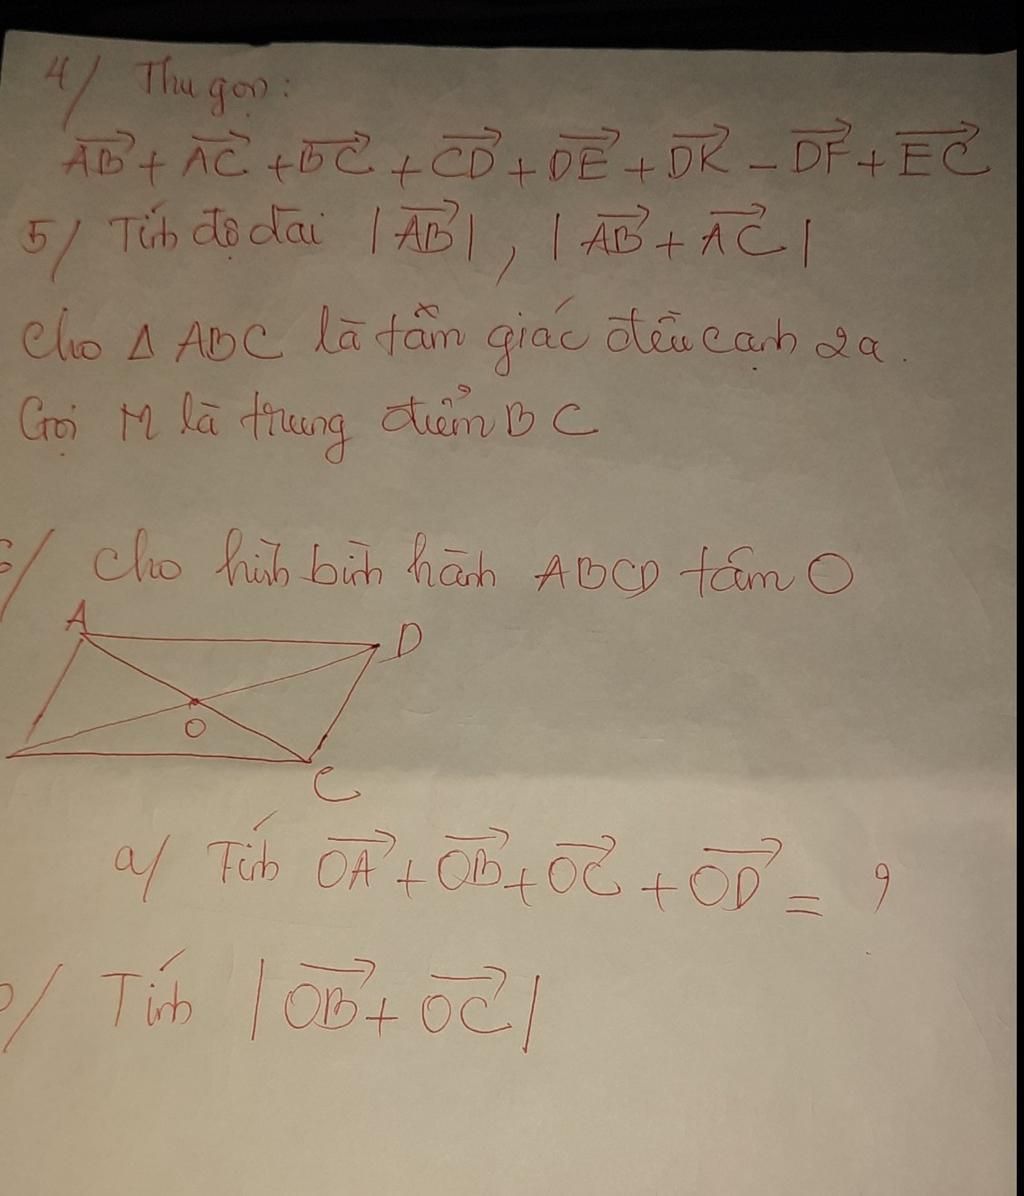 4/ Thu gọn:
AB + AC + BC + CD + DE + DK - DF + EC
5/ Tính độ dài |AB|, |AB + AC|
Cho Δ ABC là tam giác đều cạnh 2a.
Gọi M là trung điểm BC
6/ Cho hình bình hành ABCD tâm O
A
D
O
C
a/ Tính OA + OB + OC + OD = ?
b/ Tính |OB + OC|